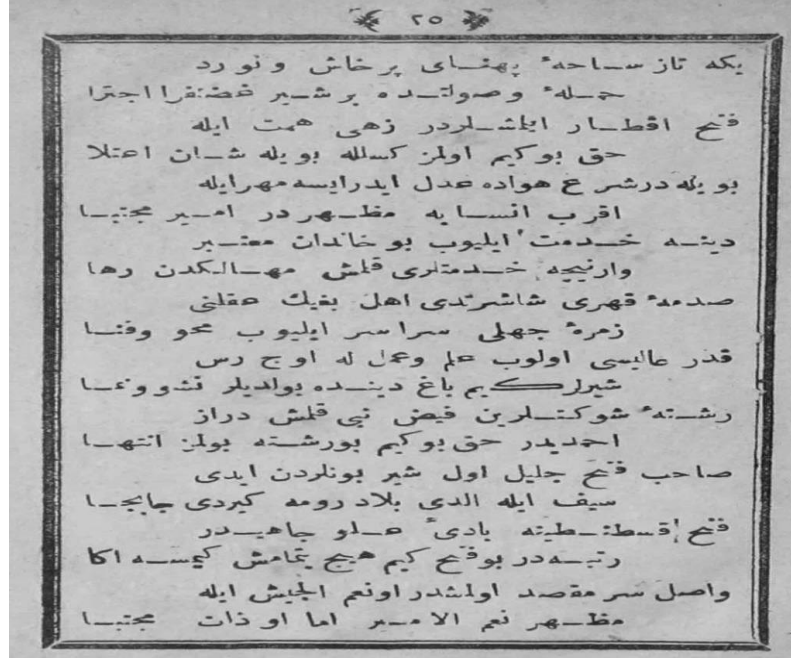 ٢٥
یکه تاز ساحهٔ پهنای پرخاش ونورد
حملهٔ وصولتده بر شیر غضنفرا اجترا
فتح اقطار ایلمشلردر زهی همت ایله
حق بوکیم اولمز کسلله بویله شان اعتلا
بویله درشرع هواده عدل ایدرایسه مهرایله
اقرب انسابه مظهردر امیر مجتبا
دینه خدمت ایلیوب بو خاندان معتبر
وارنیچه خدمتلری قلمش مهالکدن رها
صدمهٔ قهری شاشرتدی اهل بغیك عقلنی
زمرهٔ جهلی سراسر ایلیوب محو وفنا
قدر عالیسی اولوب علم وعمل له اوج رس
شیرلرکیم باغ دینده بولدیلر نشوونما
رشتهٔ شوکتلرین فیض نبی قلمش دراز
احمدیدر حق بوکیم بورشته بولمز انتها
صاحب فتح جلیل اول شیر بونلردن ایدی
سیف ایله الدی بلاد رومه کیردی جابجا
فتح قسطنطینه بادیٔ علو جاهیدر
رتبه در بوفتح کیم هیچ یتمامش کیمسه اکا
واصل سر مقصد اولمشدر اونعم الجیش ایله
مظهر نعم الامیر اما او ذات مجتبا